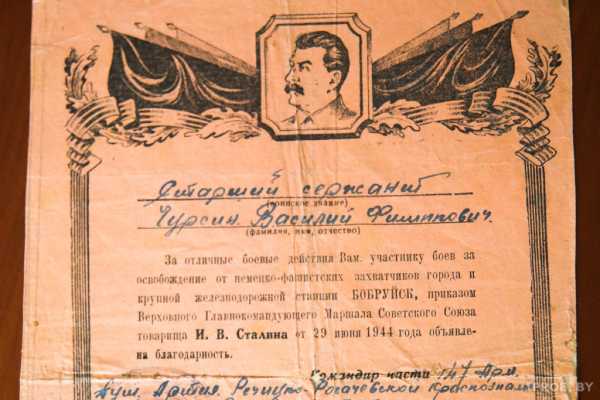 Старший сержант
(воинское звание)
Чурсин Василий Филиппович.
(фамилия, имя, отчество)
За отличные боевые действия Вам, участнику боев за
освобождение от немецко-фашистских захватчиков города и
крупной железнодорожной станции БОБРУЙСК, приказом
Верховного Главнокомандующего Маршала Советского Союза
товарища И. В. Сталина от 29 июня 1944 года объявле-
на благодарность.
Командир части 147 Арм.
Пуш. Артил. Речицко-Рогачевской Краснозна
PROBE.BY